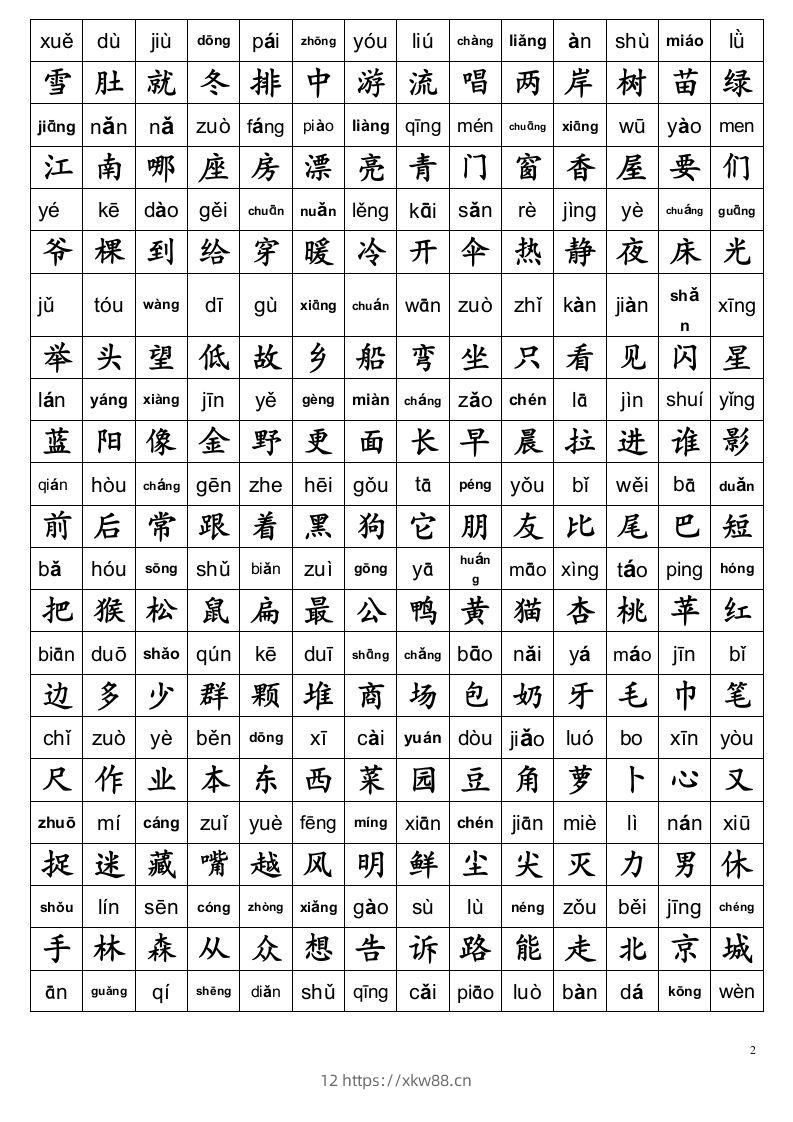 xuě dù jiù dōng pái zhōng yóu liú chàng liǎng àn shù miáo lǜ
雪 肚 就 冬 排 中 游 流 唱 两 岸 树 苗 绿
jiāng nǎn nǎ zuò fáng piào liàng qīng mén chuāng xiāng wū yào men
江 南 哪 座 房 漂 亮 青 门 窗 香 屋 要 们
yé kē dào gěi chuān nuǎn lěng kāi sǎn rè jìng yè chuáng guāng
爷 棵 到 给 穿 暖 冷 开 伞 热 静 夜 床 光
jǔ tóu wàng dī gù xiāng chuán wān zuò zhǐ kàn jiàn shǎn xīng
举 头 望 低 故 乡 船 弯 坐 只 看 见 闪 星
lán yáng xiàng jīn yě gèng miàn cháng zǎo chén lā jìn shuí yǐng
蓝 阳 像 金 野 更 面 长 早 晨 拉 进 谁 影
qián hòu cháng gēn zhe hēi gǒu tā péng yǒu bǐ wěi bā duǎn
前 后 常 跟 着 黑 狗 它 朋 友 比 尾 巴 短
bǎ hóu sōng shǔ biǎn zuì gōng yā huáng māo xìng táo ping hóng
把 猴 松 鼠 扁 最 公 鸭 黄 猫 杏 桃 苹 红
biān duō shǎo qún kē duī shāng chǎng bāo nǎi yá máo jīn bǐ
边 多 少 群 颗 堆 商 场 包 奶 牙 毛 巾 笔
chǐ zuò yè běn dōng xī cài yuán dòu jiǎo luó bo xīn yòu
尺 作 业 本 东 西 菜 园 豆 角 萝 卜 心 又
zhuō mí cáng zuǐ yuè fēng míng xiān chén jiān miè lì nán xiū
捉 迷 藏 嘴 越 风 明 鲜 尘 尖 灭 力 男 休
shǒu lín sēn cóng zhòng xiǎng gào sù lù néng zǒu běi jīng chéng
手 林 森 从 众 想 告 诉 路 能 走 北 京 城
ān guǎng qí shēng diǎn shǔ qīng cǎi piāo luò bàn dá kōng wèn
2
12 https://xkw88.cn